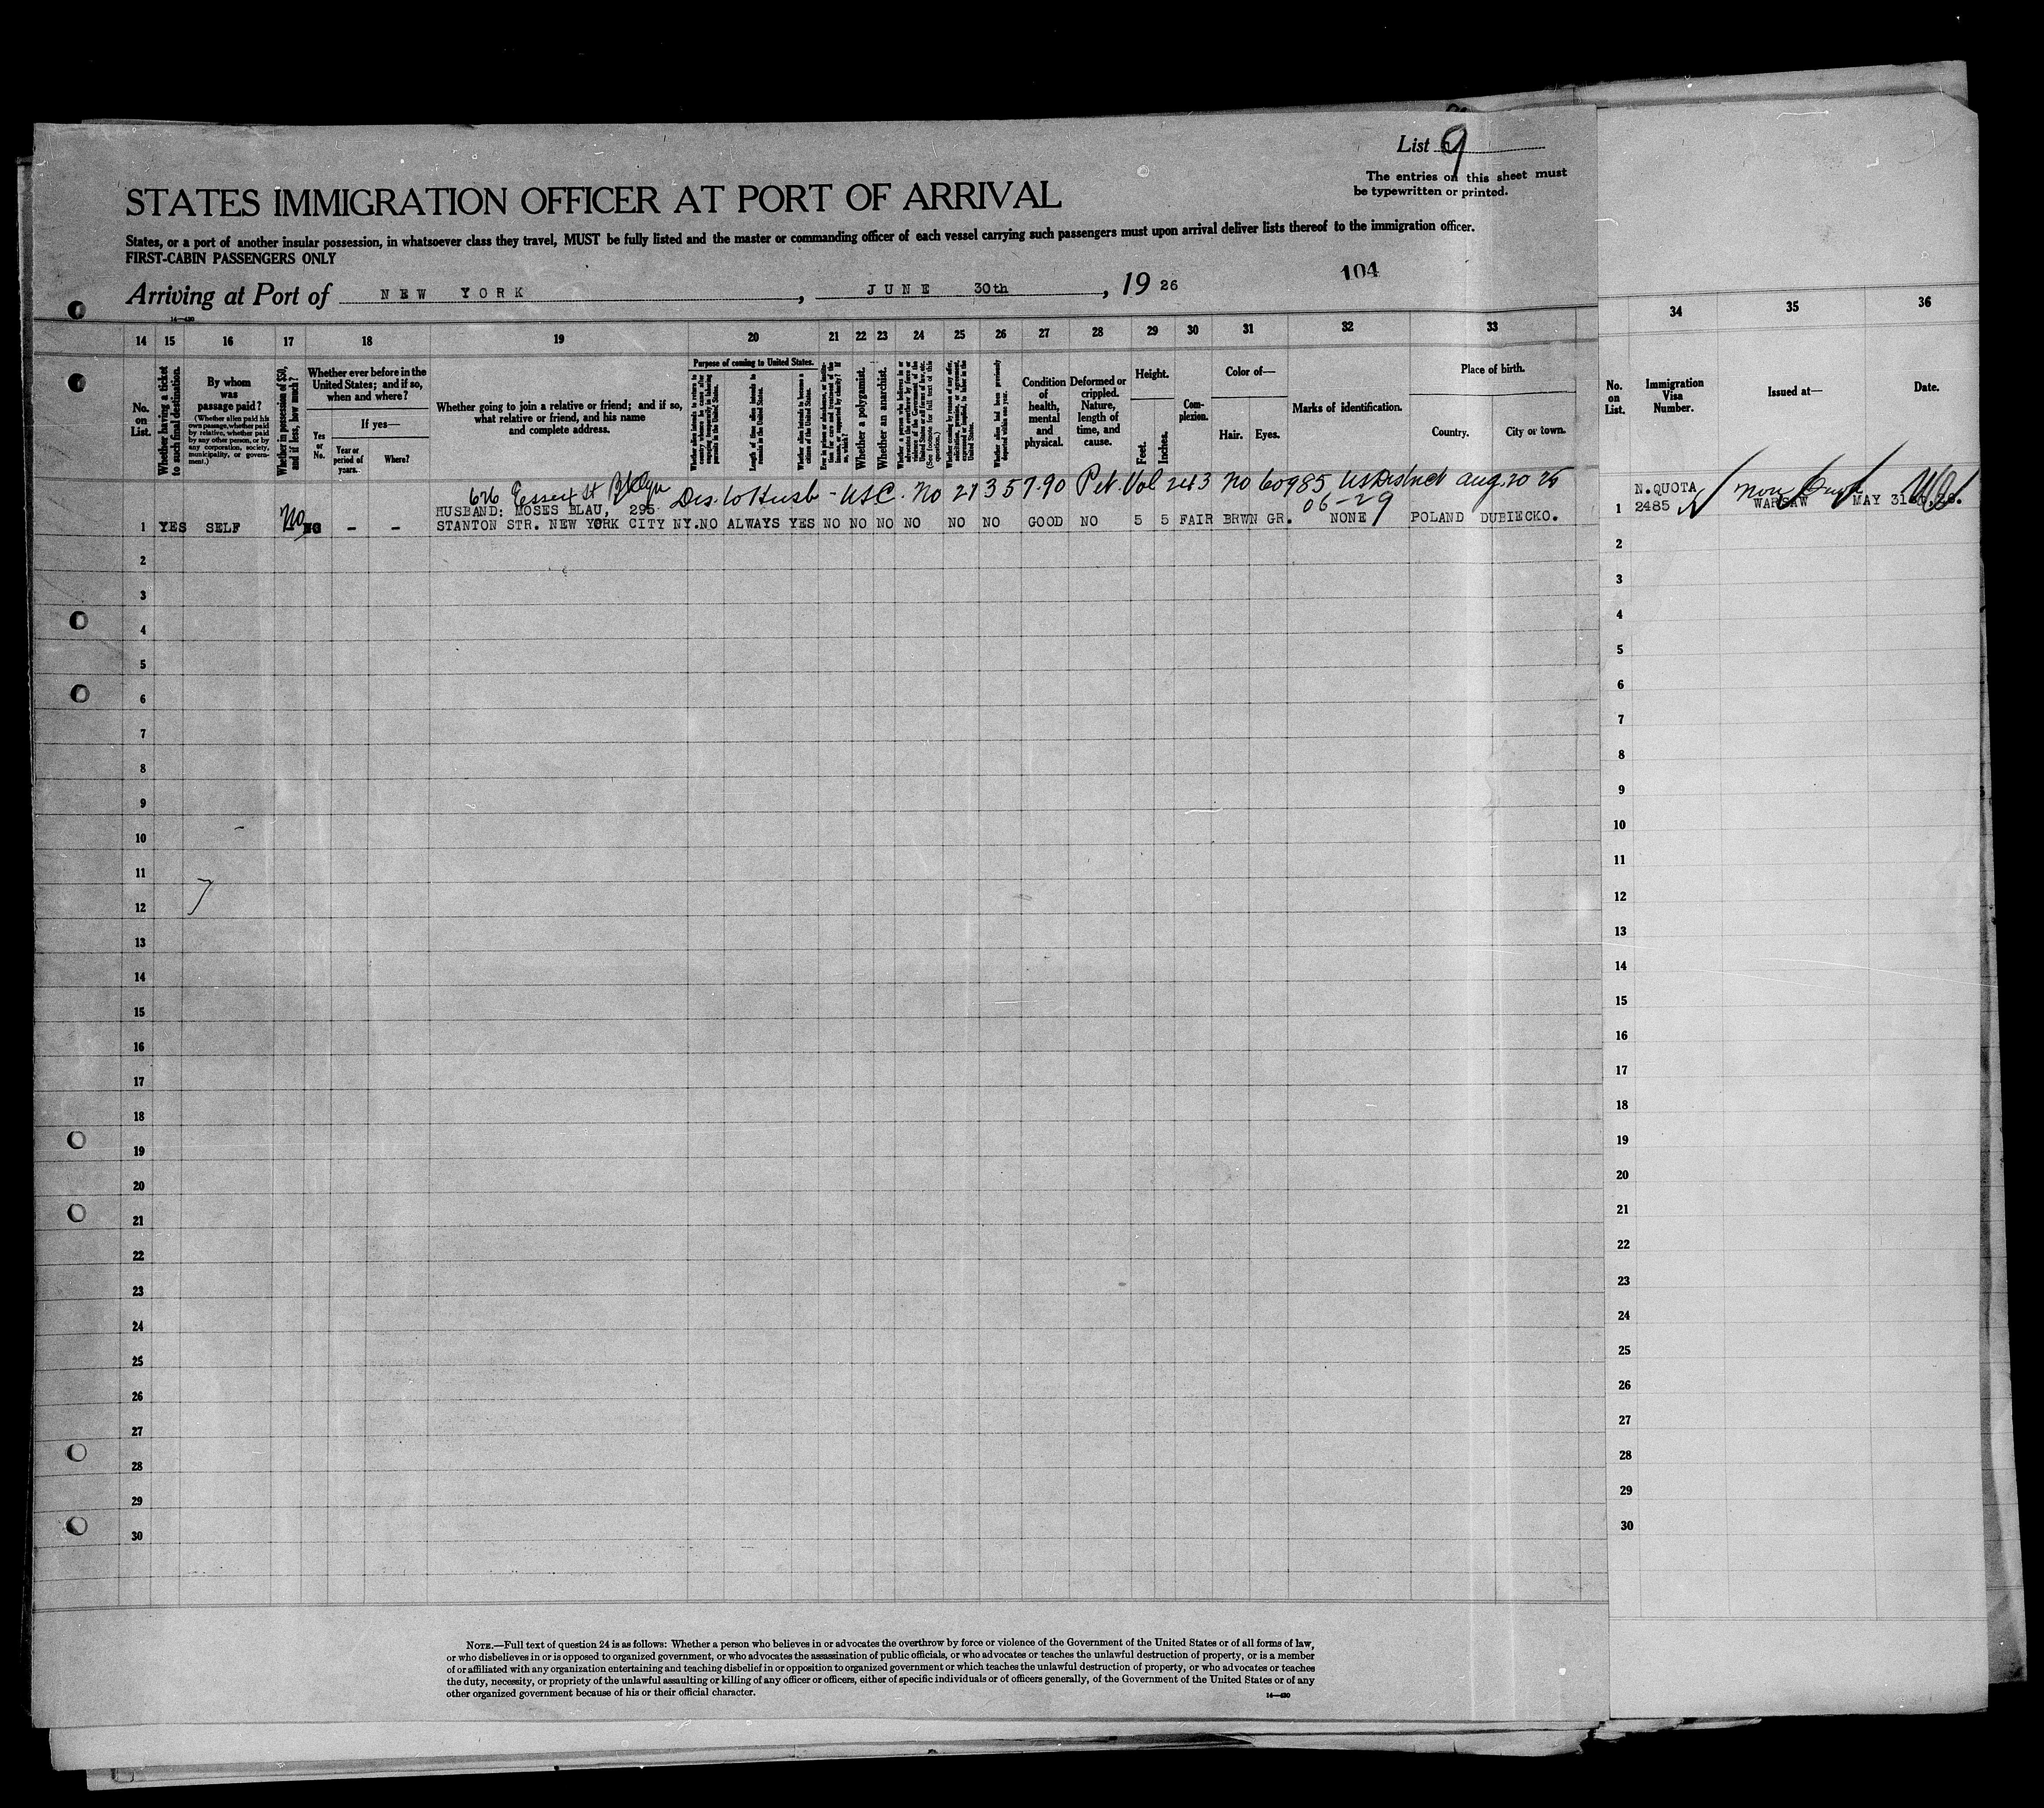 List 9
The entries on this sheet must
be typewritten or printed.
STATES IMMIGRATION OFFICER AT PORT OF ARRIVAL
States, or a port of another insular possession, in whatsoever class they travel, MUST be fully listed and the master or commanding officer of each vessel carrying such passengers must upon arrival deliver lists thereof to the immigration officer.
FIRST-CABIN PASSENGERS ONLY
104
Arriving at Port of NEW YORK, JUNE 30th, 19 26
14—430
14 15 16 17 18 19 20 21 22 23 24 25 26 27 28 29 30 31 32 33 34 35 36
No. on List.
Whether having a ticket to such final destination.
By whom was passage paid?
(Whether alien paid his own passage, whether paid by relative, whether paid by any other person, or by any corporation, society, municipality, or government.)
Whether in possession of $50, and if less, how much?
Whether ever before in the United States; and if so, when and where?
Yes or No.
If yes—
Year or period of years.
Where?
Whether going to join a relative or friend; and if so, what relative or friend, and his name and complete address.
Purpose of coming to United States.
Length of time alien intends to remain in the United States.
Whether alien intends to become a citizen of the United States.
Whether a polygamist.
Whether an anarchist.
Condition of health, mental and physical.
Deformed or crippled. Nature, length of time, and cause.
Height.
Feet.
Inches.
Complexion.
Color of—
Hair.
Eyes.
Marks of identification.
Place of birth.
Country.
City or town.
No. on List.
Immigration Visa Number.
Issued at—
Date.
626 Essex St Bklyn Dis. to Husb - USC. No 2135790 Pet. Vol 243 No 60985 US District Aug. 20 25
06-29
HUSBAND: MOSES BLAU, 295
1 YES SELF No NO - - STANTON STR. NEW YORK CITY NY. NO ALWAYS YES NO NO NO NO NO NO GOOD NO 5 5 FAIR BRWN GR. NONE POLAND DUBIECKO.
N.QUOTA
1 2485 WARSAW MAY 31st, 26.
2 2
3 3
4 4
5 5
6 6
7 7
8 8
9 9
10 10
11 11
12 12
13 13
14 14
15 15
16 16
17 17
18 18
19 19
20 20
21 21
22 22
23 23
24 24
25 25
26 26
27 27
28 28
29 29
30 30
NOTE.—Full text of question 24 is as follows: Whether a person who believes in or advocates the overthrow by force or violence of the Government of the United States or of all forms of law,
or who disbelieves in or is opposed to organized government, or who advocates the assassination of public officials, or who advocates or teaches the unlawful destruction of property, or is a member
of or affiliated with any organization entertaining and teaching disbelief in or opposition to organized government or which teaches the unlawful destruction of property, or who advocates or teaches
the duty, necessity, or propriety of the unlawful assaulting or killing of any officer or officers, either of specific individuals or of officers generally, of the Government of the United States or of any
other organized government because of his or their official character.
14—430